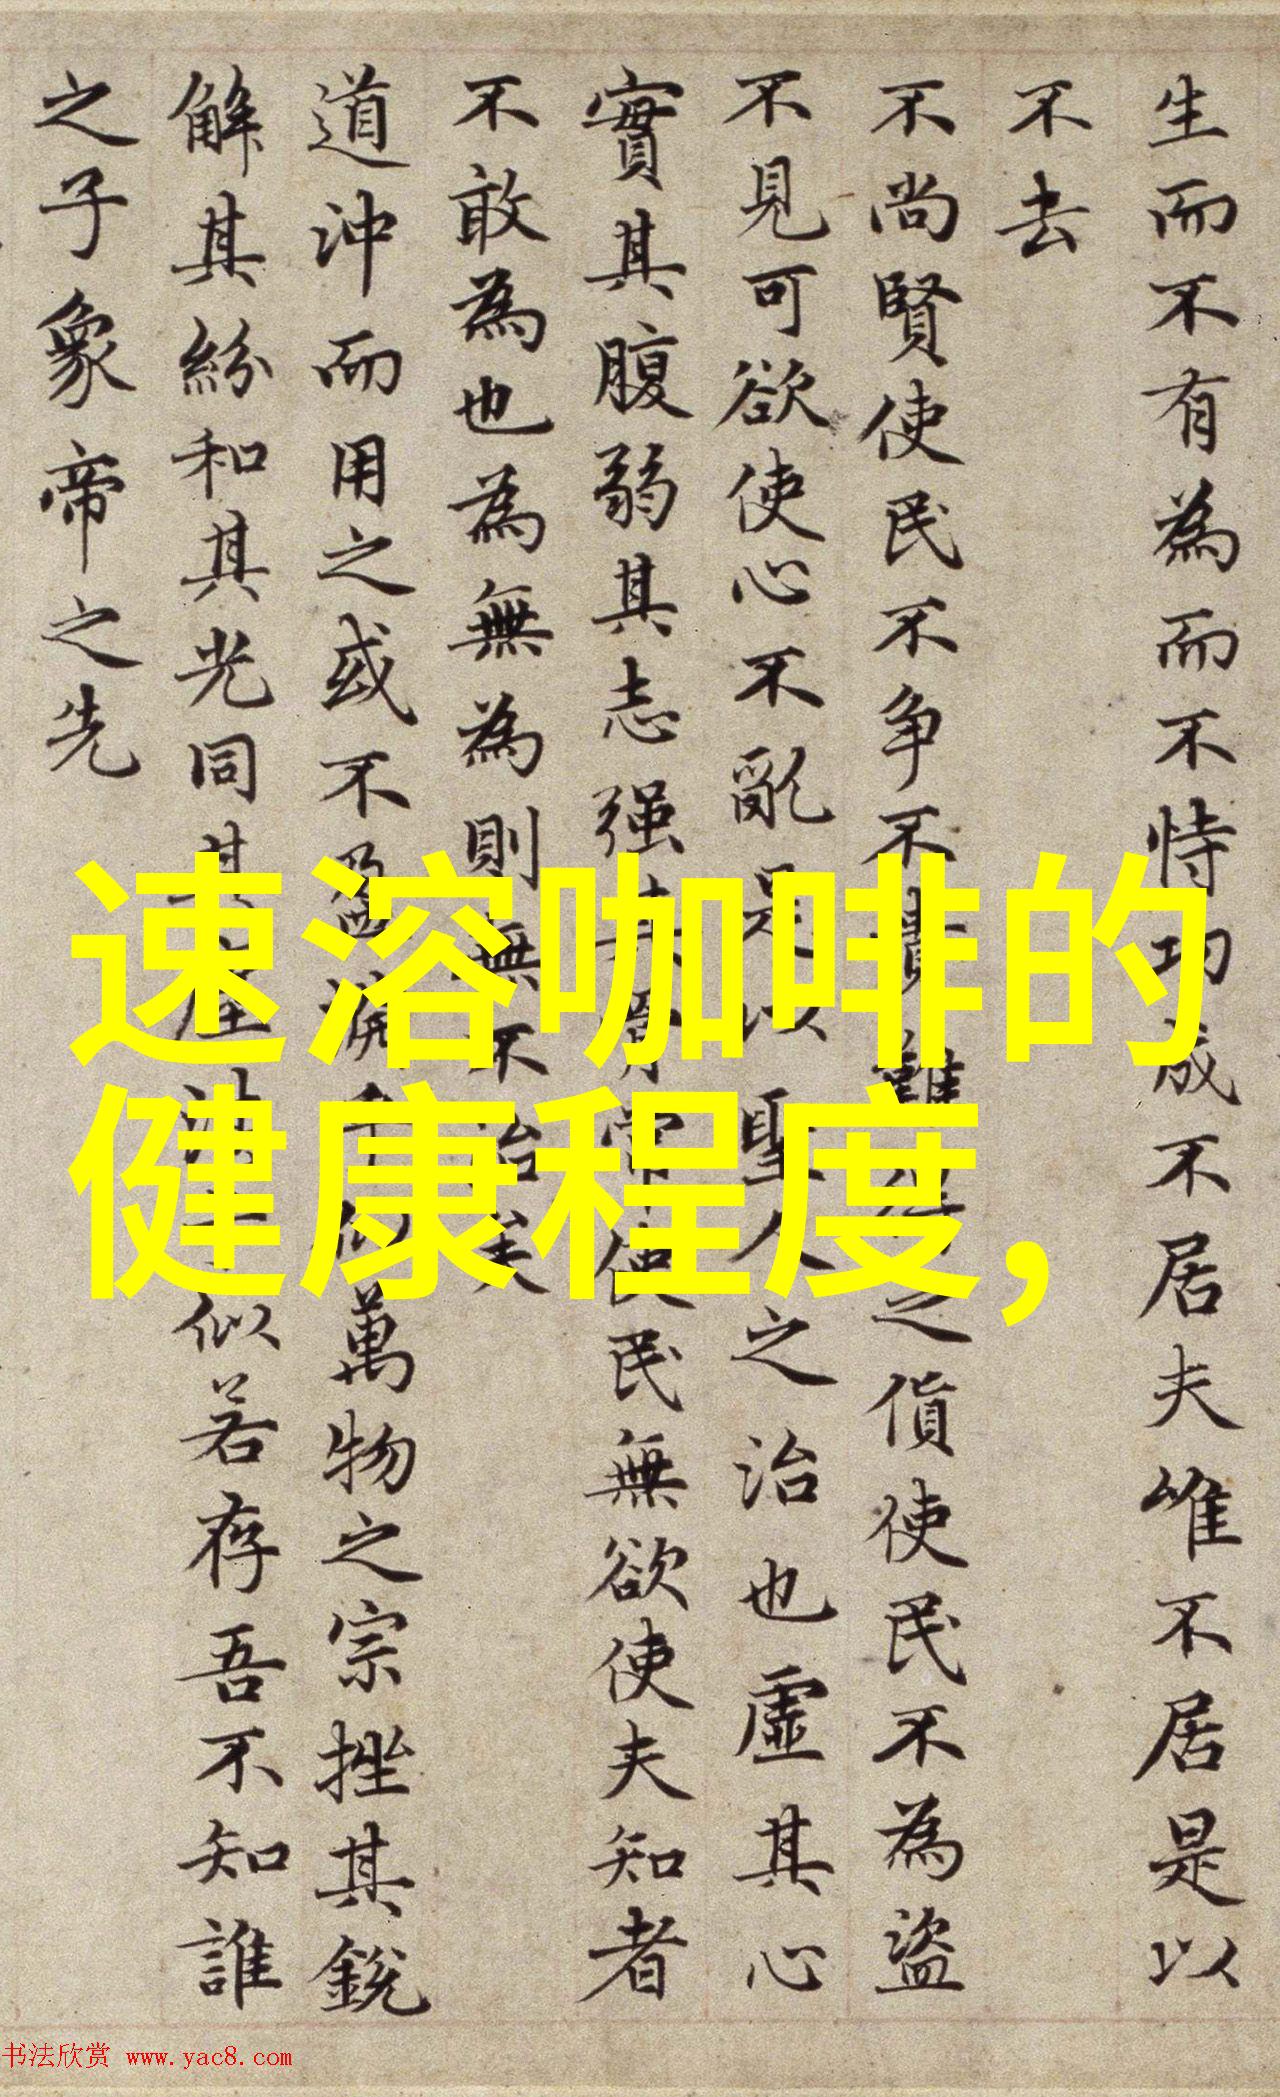 生而不有為而不恃功成不居夫唯不居是以
不去
不尚賢使民不争不貴難得之貨使民不為盜
不見可欲使心不亂是以聖人之治也虛其心
實其腹弱其志强其骨常使民無欲使夫知者
不敢為也為無為則無不治矣
道沖而用之或不盈淵乎似萬物之宗挫其銳
解其紛和其光同其塵湛兮似若存吾不知誰
之子象帝之先
速溶咖啡的
健康程度,
书法欣赏 www.yac8.com